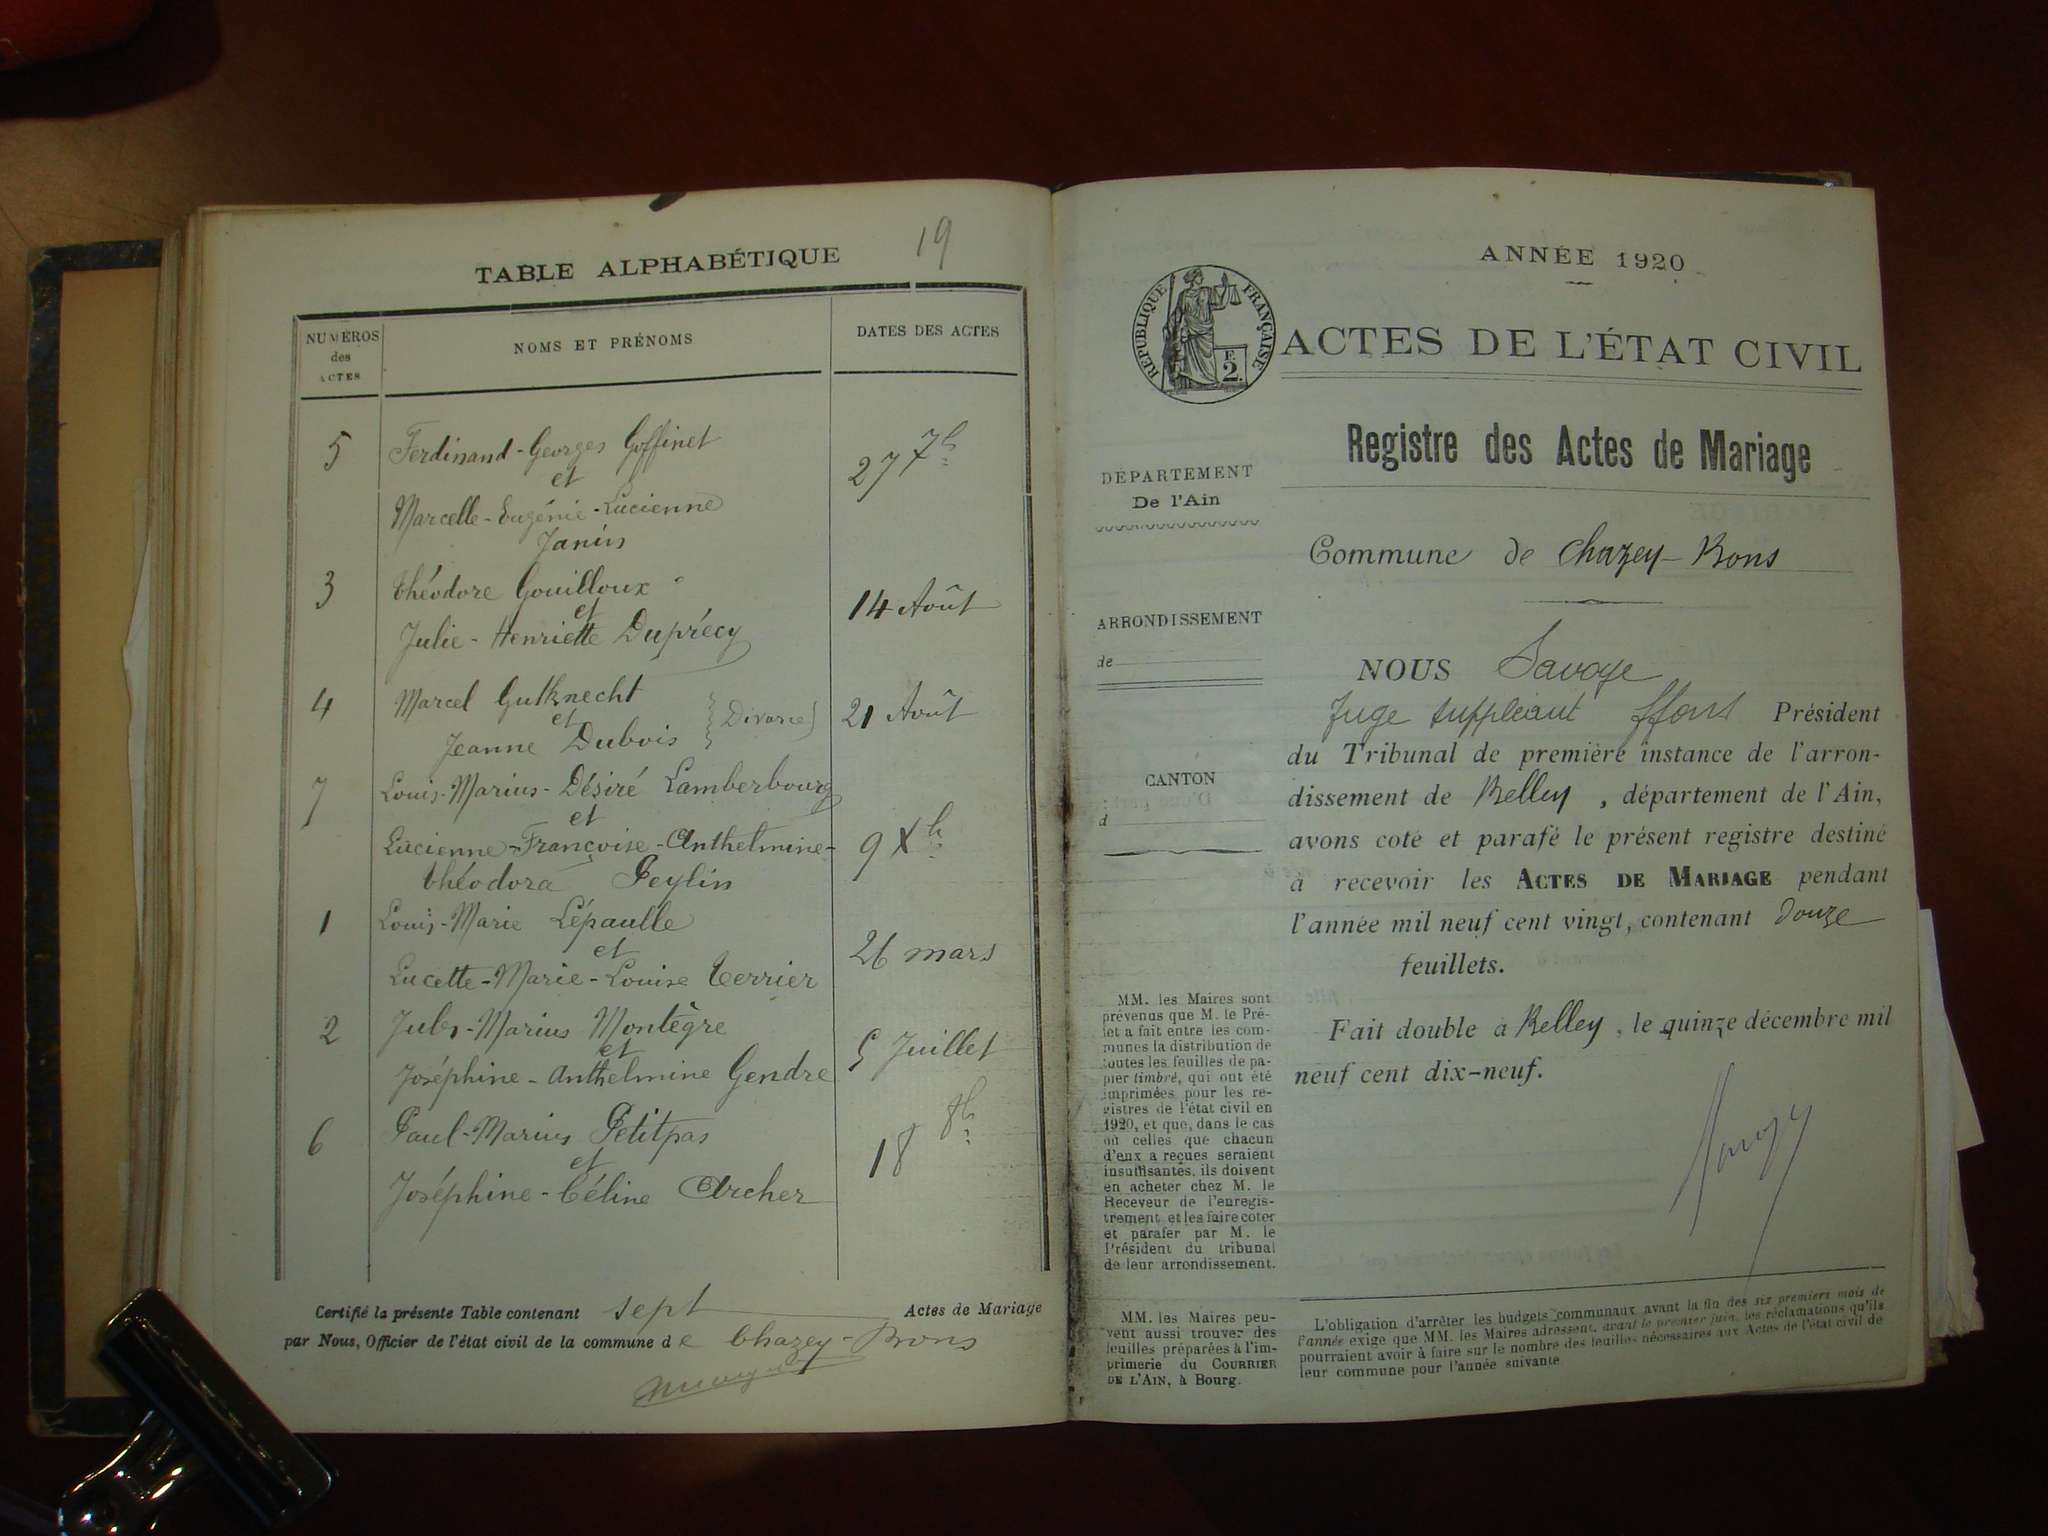 19
TABLE ALPHABÉTIQUE
NUMÉROS
des
ACTES
NOMS ET PRÉNOMS
DATES DES ACTES
5 Ferdinand-Georges Goffinet
et
27 7b
Marcelle-Eugénie-Lucienne
Janin
3 Théodore Gouilloux
et
14 Août
Julie-Henriette Duprécy
4 Marcel Gutknecht
et
(Divorce)
21 Août
Jeanne Dubois
7 Louis-Marius-Désiré Lamberbourg
et
Lucienne-Françoise-Anthelmine-
9 Xb
Théodora Peylin
1 Louis-Marie Lépaulle
et
26 mars
Lucette-Marie-Louise Terrier
2 Jules-Marius Montègre
et
5 Juillet
Joséphine-Anthelmine Gendre
6 Paul-Marius Petitpas
et
18 8b
Joséphine-Céline Archer
Certifié la présente Table contenant sept Actes de Mariage
par Nous, Officier de l'état civil de la commune de Chazey-Bons
ANNÉE 1920
RÉPUBLIQUE FRANÇAISE
F.
2.
ACTES DE L'ÉTAT CIVIL
Registre des Actes de Mariage
DÉPARTEMENT
De l'Ain
Commune de Chazey-Bons
ARRONDISSEMENT
de
CANTON
d
NOUS Savoye
Juge suppléant ffons Président
du Tribunal de première instance de l'arron-
dissement de Belley, département de l'Ain,
avons coté et parafé le présent registre destiné
à recevoir les ACTES DE MARIAGE pendant
l'année mil neuf cent vingt, contenant douze
feuillets.
Fait double à Belley, le quinze décembre mil
neuf cent dix-neuf.
Savoye
MM. les Maires sont
prévenus que M. le Pré-
fet a fait entre les com-
munes la distribution de
toutes les feuilles de pa-
pier timbré, qui ont été
imprimées pour les re-
gistres de l'état civil en
1920, et que, dans le cas
où celles que chacun
d'eux a reçues seraient
insuffisantes, ils doivent
en acheter chez M. le
Receveur de l'enregis-
trement et les faire coter
et parafer par M. le
Président du tribunal
de leur arrondissement.
MM. les Maires peu-
vent aussi trouver des
feuilles préparées à l'im-
primerie du COURRIER
DE L'AIN, à Bourg.
L'obligation d'arrêter les budgets communaux avant la fin des six premiers mois de
l'année exige que MM. les Maires adressent, avant le premier juin, les réclamations qu'ils
pourraient avoir à faire sur le nombre des feuilles nécessaires aux Actes de l'état civil de
leur commune pour l'année suivante